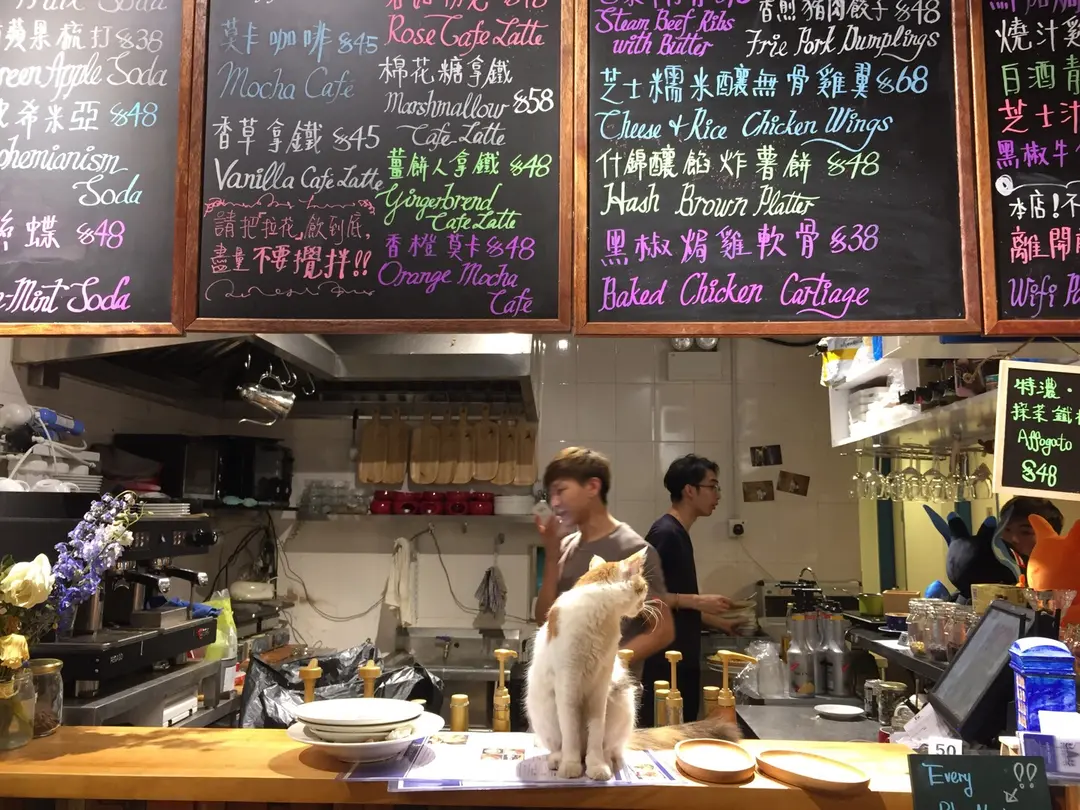 蘋果梳打 $38
Green Apple Soda
希米亞 $48
Bohemianism
Soda
蝶 $48
Mint Soda
莫卡咖啡 $45
Mocha Cafe
香草拿鐵 $45
Vanilla Cafe Latte
請把"拉花"飲到底,
盡量不要攪拌!!
Rose Cafe Latte
棉花糖拿鐵
Marshmallow $58
Cafe Latte
薑餅人拿鐵 $48
Gingerbrend
Cafe Latte
香橙莫卡 $48
Orange Mocha
Cafe
Steam Beef Ribs
with Butter
香煎豬肉餃子 $48
Frie Pork Dumplings
芝士糯米釀無骨雞翼 $68
Cheese & Rice Chicken Wings
什錦釀餡炸薯餅 $48
Hash Brown Platter
黑椒焗雞軟骨 $38
Baked Chicken Cartiage
燒汁雞
白酒青
芝士
黑椒牛
本店!不
離開
Wifi
特濃
抹茶
Affogato
$48
50
Every